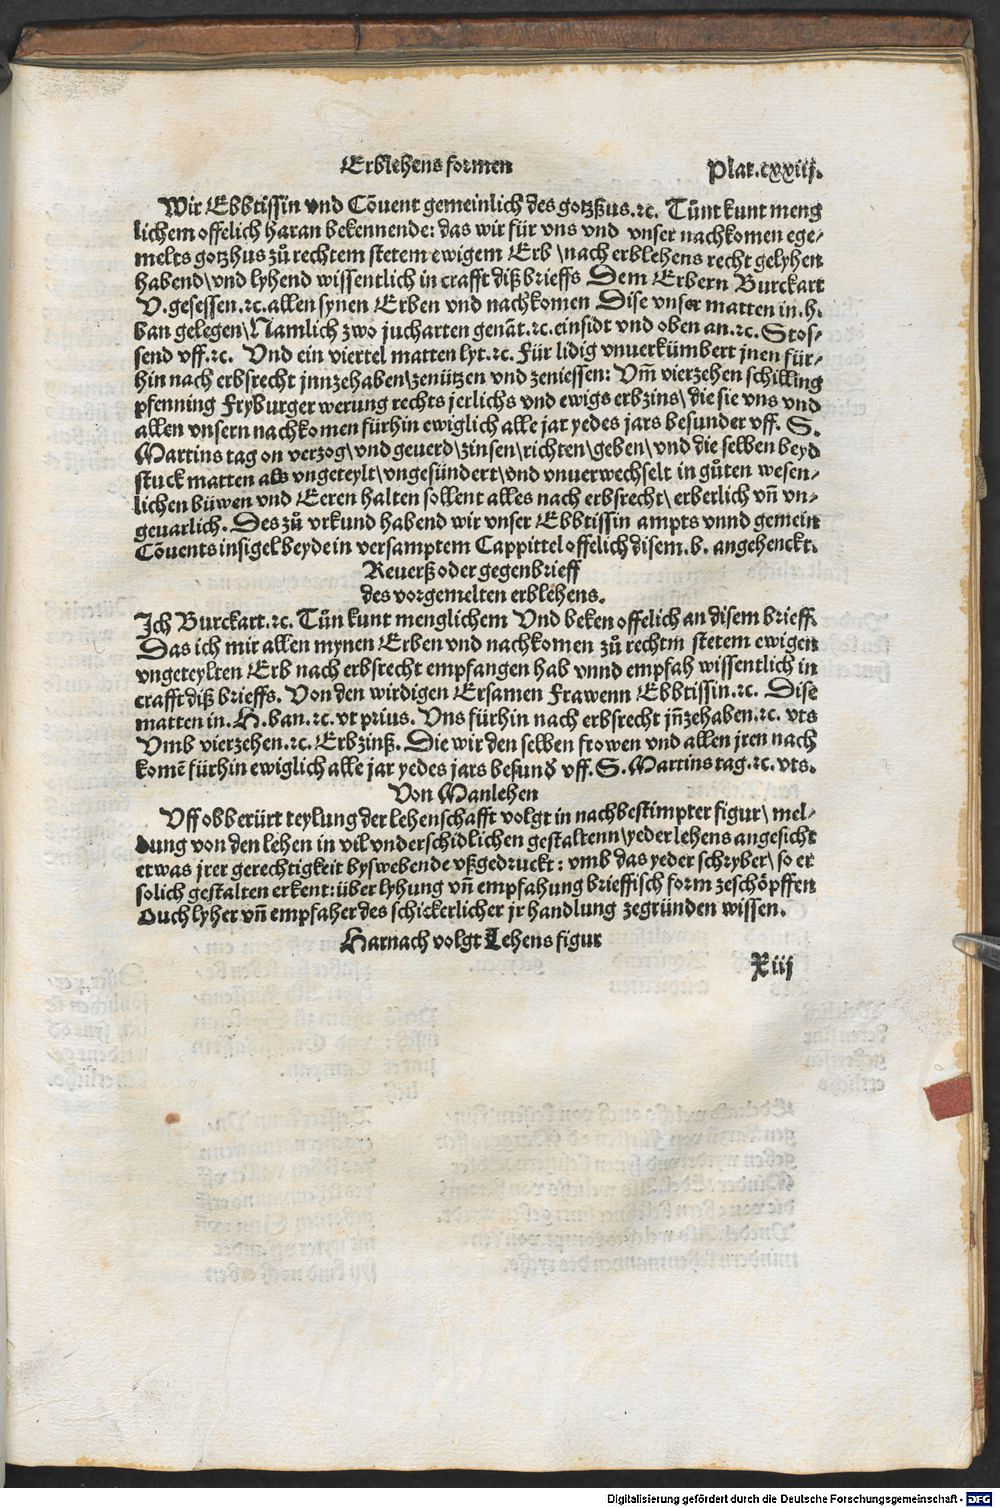 Erblehens formen
Plat. cxxiij.
Wir Ebbtissin vnd Cõuent gemeinlich des gotzßus.ꝛc. Tůnt kunt meng
lichem offelich haran bekennende: das wir für vns vnd vnser nachkomen ege-
melts gotzhus zů rechtem stetem ewigem Erb \ nach erblehens recht gelyhen
habend \ vnd lyhend wissentlich in crafft diß brieffs Dem Erbern Burckart
V. gesessen.ꝛc. allen synen Erben vnd nachkomen Dise vnser matten in.h.
ban gelegen \ Namlich zwo jucharten genãt.ꝛc. einsidt vnd oben an.ꝛc. Stos-
send vff.ꝛc. Vnd ein viertel matten lyt.ꝛc. Für lidig vnuerkümbert jnen für-
hin nach erbsrecht jnnzehaben \ zenützen vnd zeniessen: Vm̃ vierzehen schilling
pfenning Fryburger werung rechts jerlichs vnd ewigs erbzins \ die sie vns vnd
allen vnsern nachkomen fürhin ewiglich alle jar yedes jars besunder vff. S.
Martins tag on verzog \ vnd geuerd \ zinsen \ richten \ geben \ vnd die selben beyd
stuck matten als vngeteylt \ vngesündert \ vnd vnuerwechselt in gůten wesen-
lichen büwen vnd Eeren halten sollent alles nach erbsrecht \ erberlich vñ vn-
geuarlich. Des zů vrkund habend wir vnser Ebbtissin ampts vnnd gemein
Cõuents insigel beyde in versamptem Cappittel offelich disem.b. angehenckt.
Reuerß oder gegenbrieff
des vorgemelten erblehens.
Ich Burckart.ꝛc. Tůn kunt menglichem Vnd beken offelich an disem brieff.
Das ich mir allen mynen Erben vnd nachkomen zů rechtm stetem ewigen
vngeteylten Erb nach erbsrecht empfangen hab vnnd empfah wissentlich in
crafft diß brieffs. Von den wirdigen Ersamen Frawenn Ebbtissin.ꝛc. Dise
matten in. H. ban.ꝛc. vt prius. Vns fürhin nach erbsrecht jñzehaben.ꝛc. vts
Vmb vierzehen.ꝛc. Erbzinß. Die wir den selben frowen vnd allen jren nach
komẽ fürhin ewiglich alle jar yedes jars besunď vff. S. Martins tag.ꝛc. vts.
Von Manlehen
Vff obberürt teylung der lehenschafft volgt in nachbestimpter figur \ mel-
dung von den lehen in vil vnderschidlichen gestaltenn \ yeder lehens angesicht
etwas jrer gerechtigkeit byswebende vßgedruckt: vmb das yeder schryber \ so er
solich gestalten erkent: über lyhung vñ empfahung brieffisch form zeschöpffen
Ouch lyher vñ empfaher des schickerlicher jr handlung zegründen wissen.
Harnach volgt Lehens figur
X iij
Digitalisierung gefördert durch die Deutsche Forschungsgemeinschaft - DFG